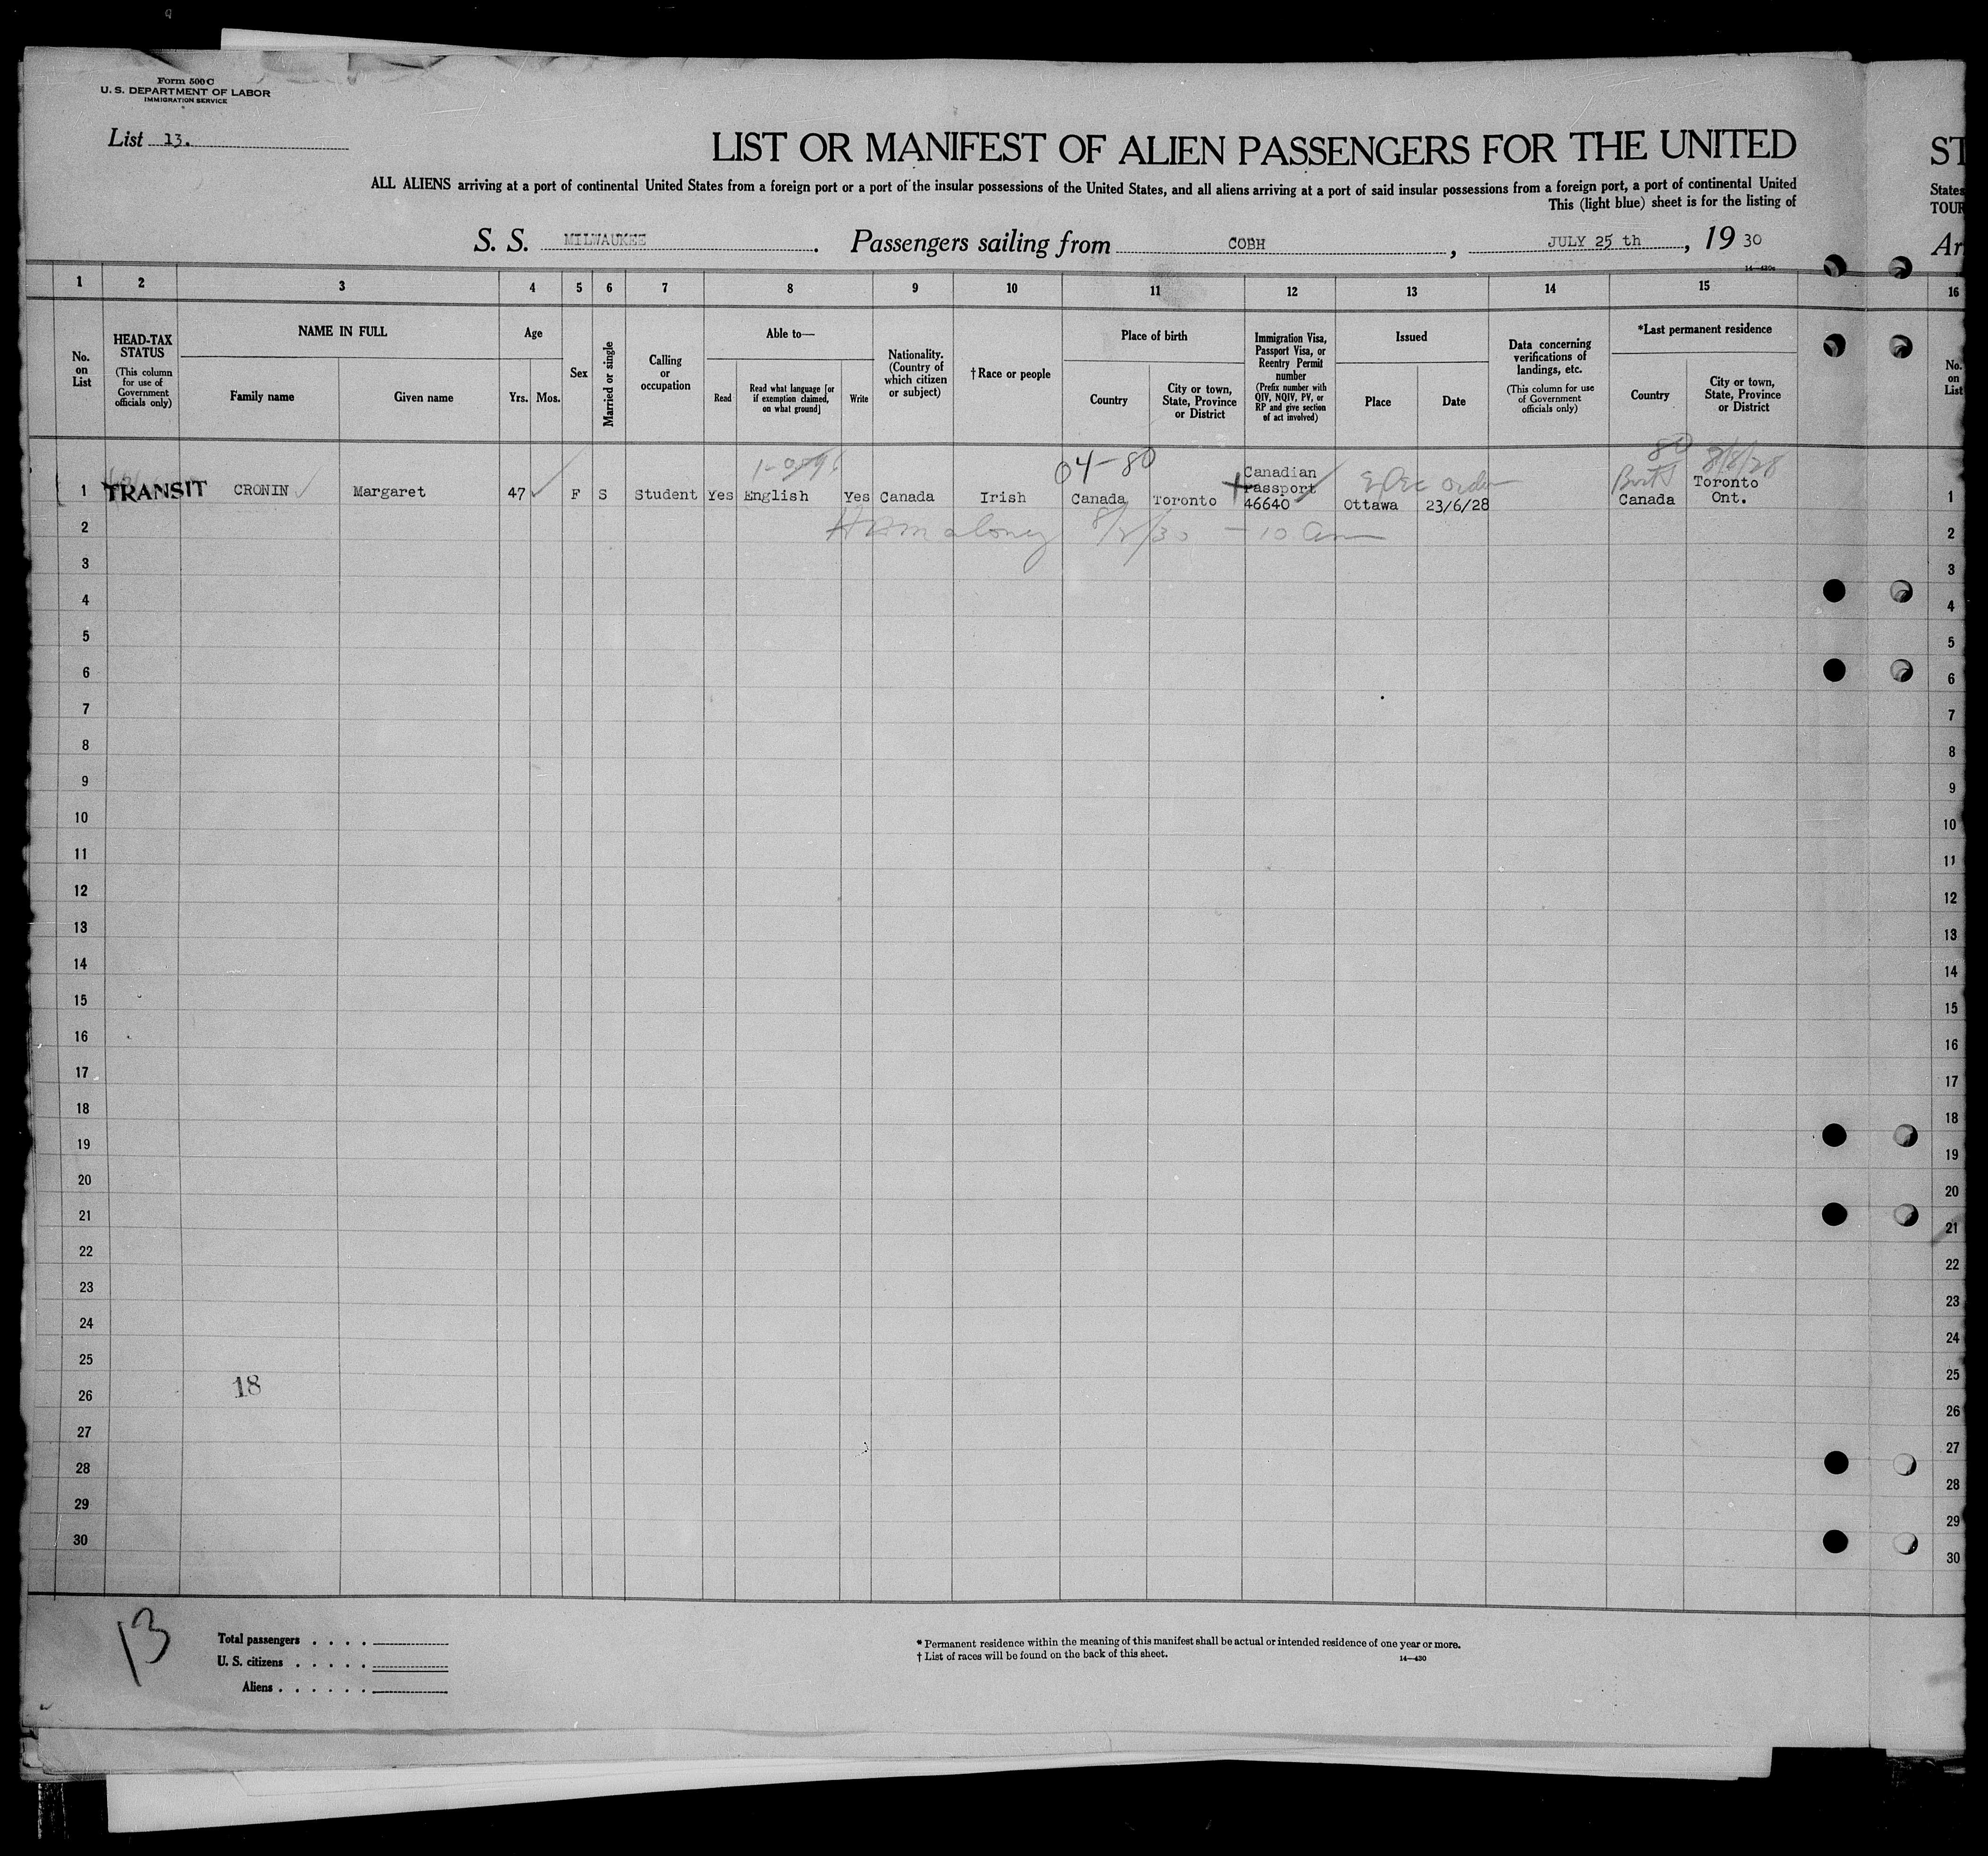 Form 500 C
U. S. DEPARTMENT OF LABOR
IMMIGRATION SERVICE
List 13.
LIST OR MANIFEST OF ALIEN PASSENGERS FOR THE UNITED
ST
ALL ALIENS arriving at a port of continental United States from a foreign port or a port of the insular possessions of the United States, and all aliens arriving at a port of said insular possessions from a foreign port, a port of continental United
States
This (light blue) sheet is for the listing of
TOUR
S. S. MILWAUKEE. Passengers sailing from COBH, JULY 25 th, 19 30
Ar
14—430c
1 2 3 4 5 6 7 8 9 10 11 12 13 14 15 16
No. on List
HEAD-TAX STATUS
(This column for use of Government officials only)
NAME IN FULL
Family name
Given name
Age
Yrs. Mos.
Sex
Married or single
Calling or occupation
Able to—
Read
Read what language [or if exemption claimed, on what ground]
Write
Nationality. (Country of which citizen or subject)
†Race or people
Place of birth
Country
City or town, State, Province or District
Immigration Visa, Passport Visa, or Reentry Permit number
(Prefix number with QIV, NQIV, PV, or RP and give section of act involved)
Issued
Place
Date
Data concerning verifications of landings, etc.
(This column for use of Government officials only)
*Last permanent residence
Country
City or town, State, Province or District
No. on List
04-80
80 8/8/28
1 TRANSIT CRONIN Margaret 47 F S Student Yes English Yes Canada Irish Canada Toronto Canadian Passport 46640 Ottawa 23/6/28 Canada Toronto Ont. 1
2 8/2/30 - 10 am 2
3 3
4 4
5 5
6 6
7 7
8 8
9 9
10 10
11 11
12 12
13 13
14 14
15 15
16 16
17 17
18 18
19 19
20 20
21 21
22 22
23 23
24 24
25 25
18
26 26
27 27
28 28
29 29
30 30
13
Total passengers . . . .
U. S. citizens . . . . .
Aliens . . . . . .
* Permanent residence within the meaning of this manifest shall be actual or intended residence of one year or more.
† List of races will be found on the back of this sheet.
14—430